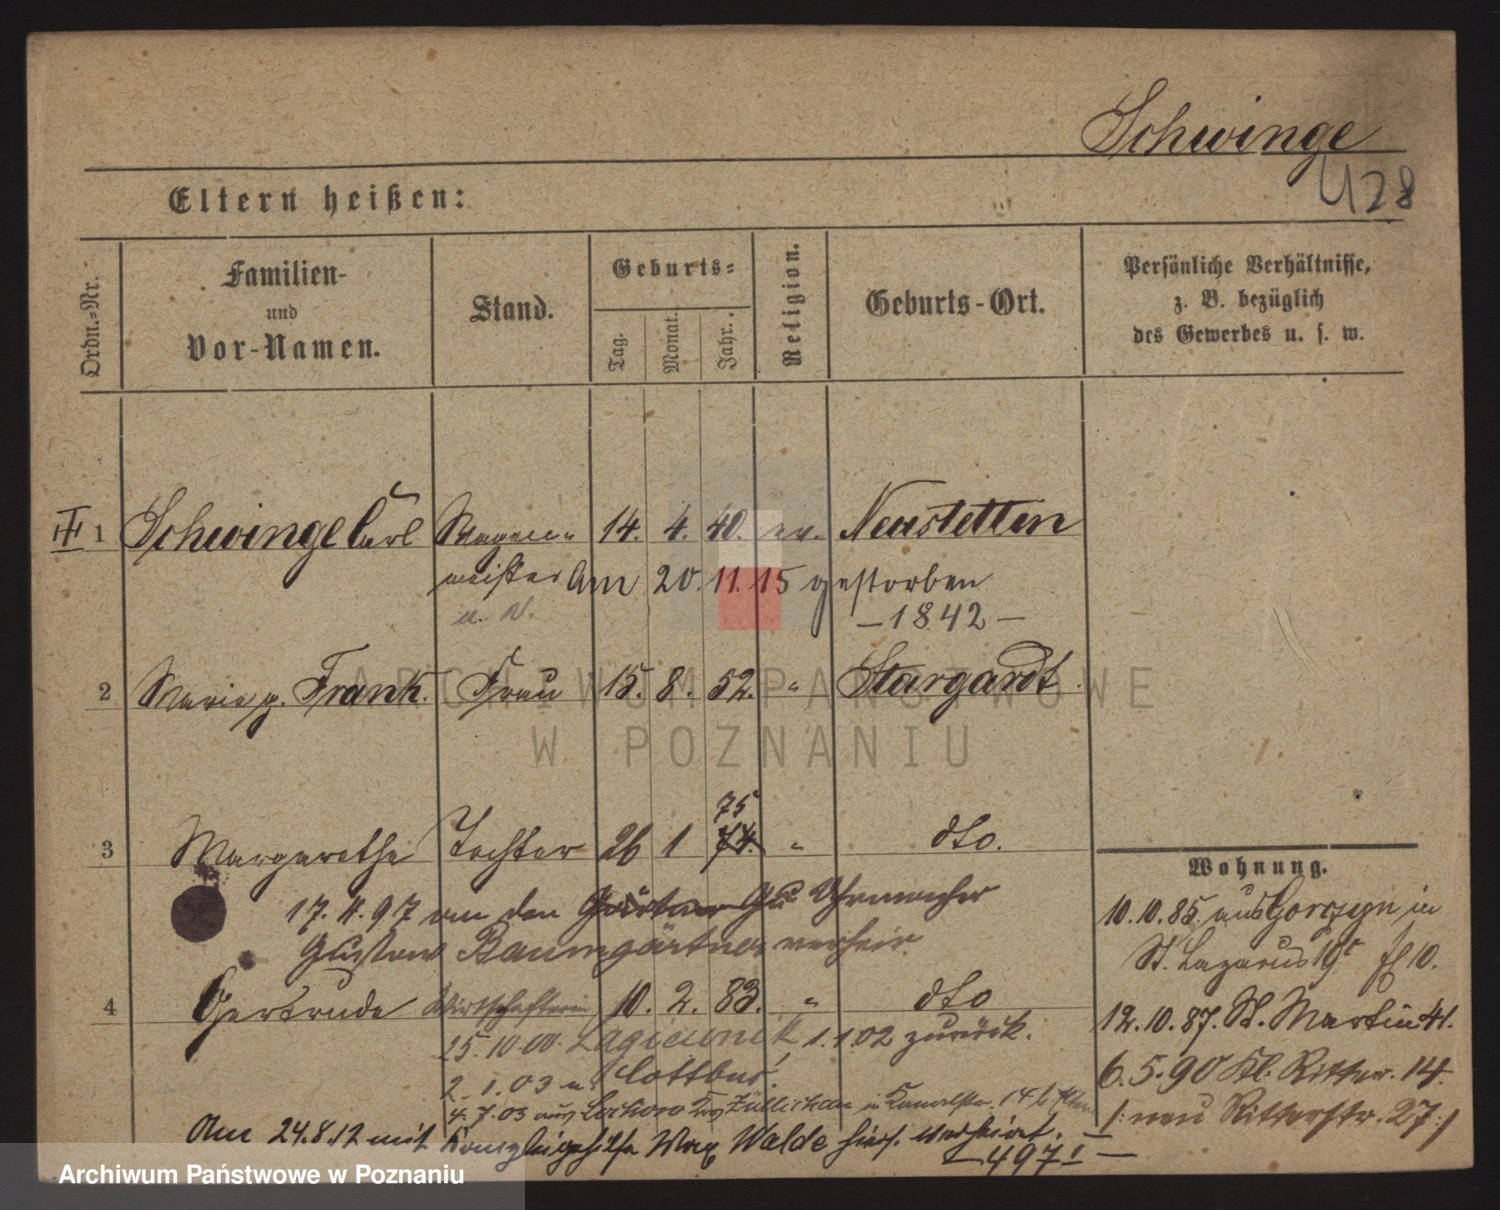 Schwinge
428
Eltern heißen:
Ordn.=Nr.
Familien-
und
Vor-Namen.
Stand.
Geburts=
Tag.
Monat.
Jahr.
Religion.
Geburts-Ort.
Persönliche Verhältnisse,
z. B. bezüglich
des Gewerbes u. s. w.
1 Schwinge Carl Wagen= 14. 4. 40. ev. Neustettin
meister Am 20.11.15 gestorben
— 1842 —
2 Marie g. Frank. Frau 15. 8. 52. " Stargardt.
75
3 Margarethe Tochter 26 1 74. " dto.
17. 4. 97 an den Gärtner Gu Uhrmacher
Gustav Baumgärtner verheir.
4 Gertrude Wirtschafterin 10. 2. 83. " dto
25.10.00. 1.1.02 zurück.
2.1.03 n. Cottbus!
4.7.03 aus Züllichau in
Am 24.8.12 mit Kanzleigehilfe Max Walde hies. verheirat.
— 497 I —
Wohnung.
10.10.85. aus Gorczyn in
St. Lazarus 19c
12.10.87. St. Martin 41.
6.5.90 Kl. Ritter. 14.
/: neu Ritterstr. 27 :/
ARCHIWUM PAŃSTWOWE
W POZNANIU
Archiwum Państwowe w Poznaniu